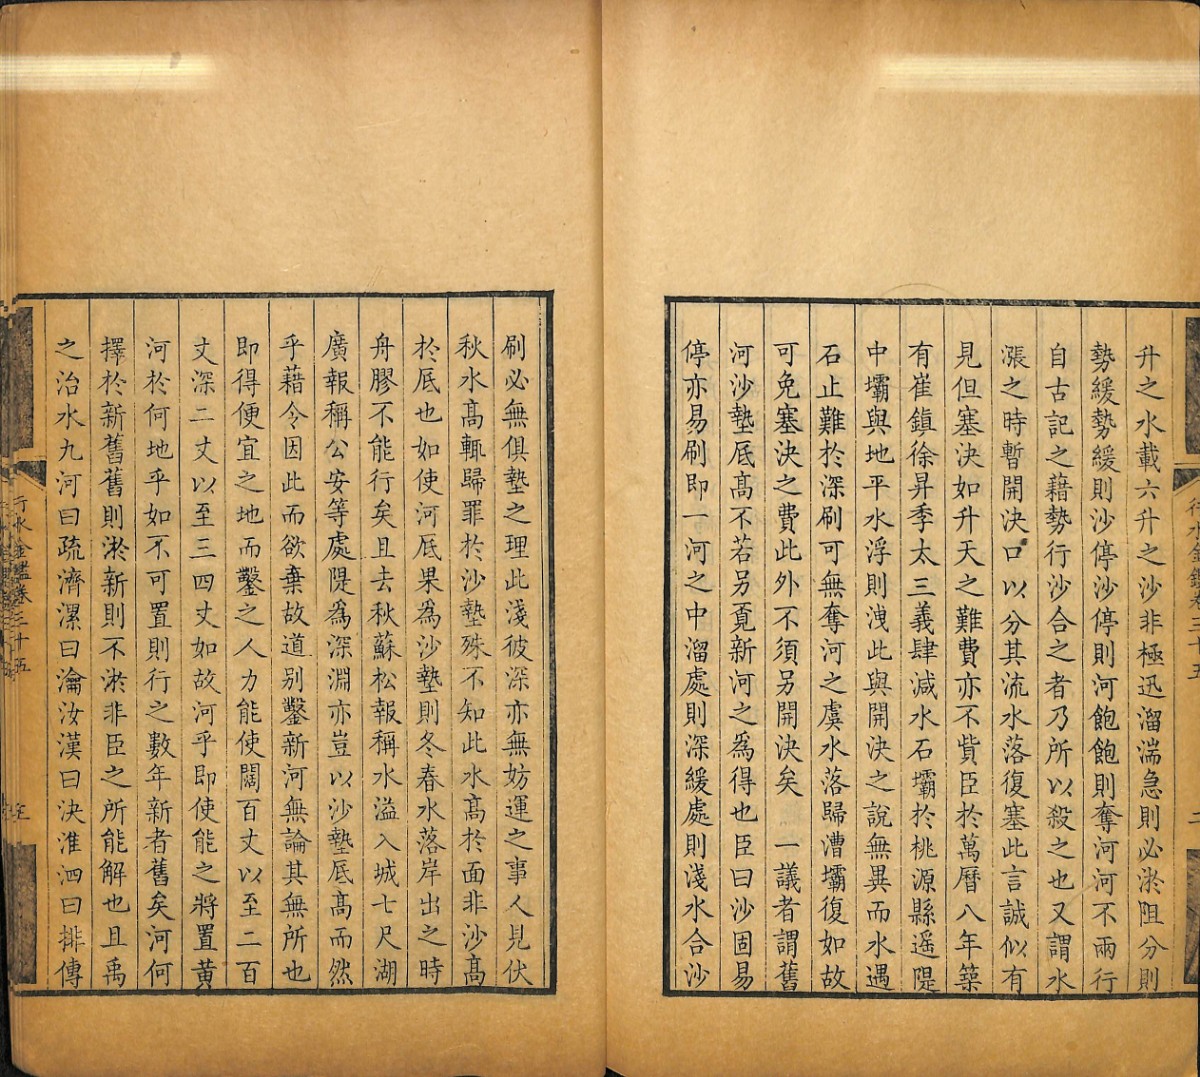 升之水載六升之沙非極迅溜湍急則必淤阻分則
勢緩勢緩則沙停沙停則河飽飽則奪河河不兩行
自古記之藉勢行沙合之者乃所以殺之也又謂水
漲之時暫開決口以分其流水落復塞此言誠似有
見但塞決如升天之難費亦不貲臣於萬曆八年築
有崔鎮徐昇季太三義肆減水石壩於桃源縣遥隄
中壩與地平水浮則洩此與開決之說無異而水遇
石止難於深刷可無奪河之虞水落歸漕壩復如故
可免塞決之費此外不須另開決矣　一議者謂舊
河沙墊底高不若另覓新河之為得也臣曰沙固易
停亦易刷即一河之中溜處則深緩處則淺水合沙
刷必無俱墊之理此淺彼深亦無妨運之事人見伏
秋水高輒歸罪於沙墊殊不知此水高於面非沙高
於底也如使河底果為沙墊則冬春水落岸出之時
舟膠不能行矣且去秋蘇松報稱水溢入城七尺湖
廣報稱公安等處隄為深淵亦豈以沙墊底高而然
乎藉令因此而欲棄故道別鑿新河無論其無所也
即得便宜之地而鑿之人力能使闊百丈以至二百
丈深二丈以至三四丈如故河乎即使能之將置黃
河於何地乎如不可置則行之數年新者舊矣河何
擇於新舊舊則淤新則不淤非臣之所能解也且禹
之治水九河曰疏濟漯曰瀹汝漢曰決淮泗曰排傳
行水金鑑卷三十五